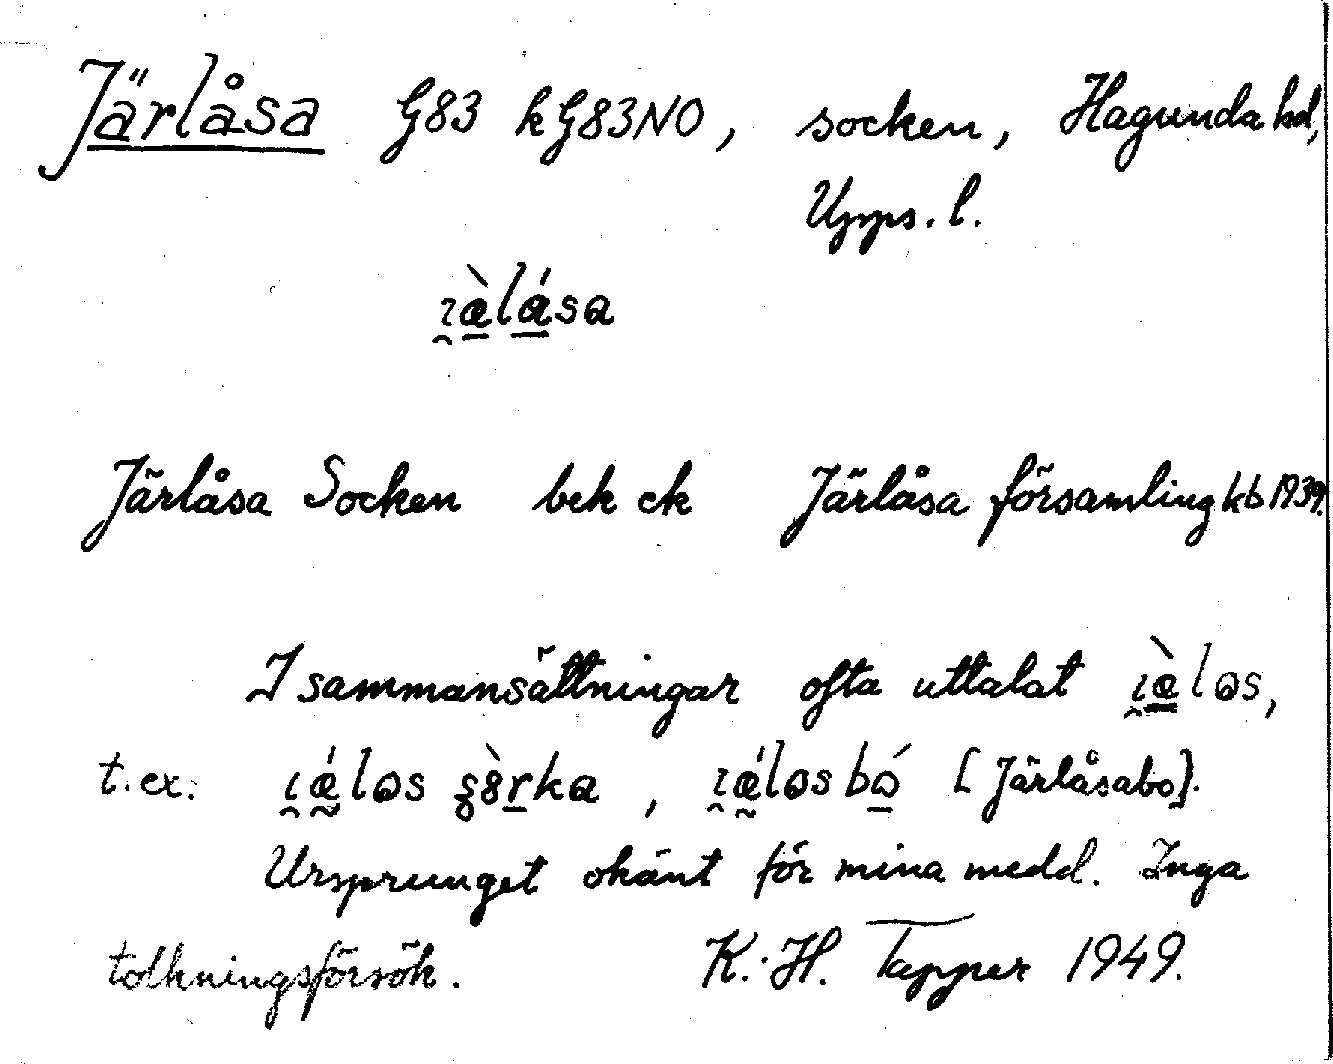 Järlåsa G83 kG83NO, socken, Hagunda hd,
Upps. l.
ɪ̯æ̀lása
Järlåsa Socken bek ek Järlåsa församling kb 1939.
I sammansättningar ofta uttalat ɪ̯æ̀lɷs,
t.ex. ɪ̯ǽlɷs , ɪ̯ǽlɷsbɷ́ [Järlåsabo].
Ursprunget okänt för mina medd. Inga
tolkningsförsök. K.-H. Tapper 1949.